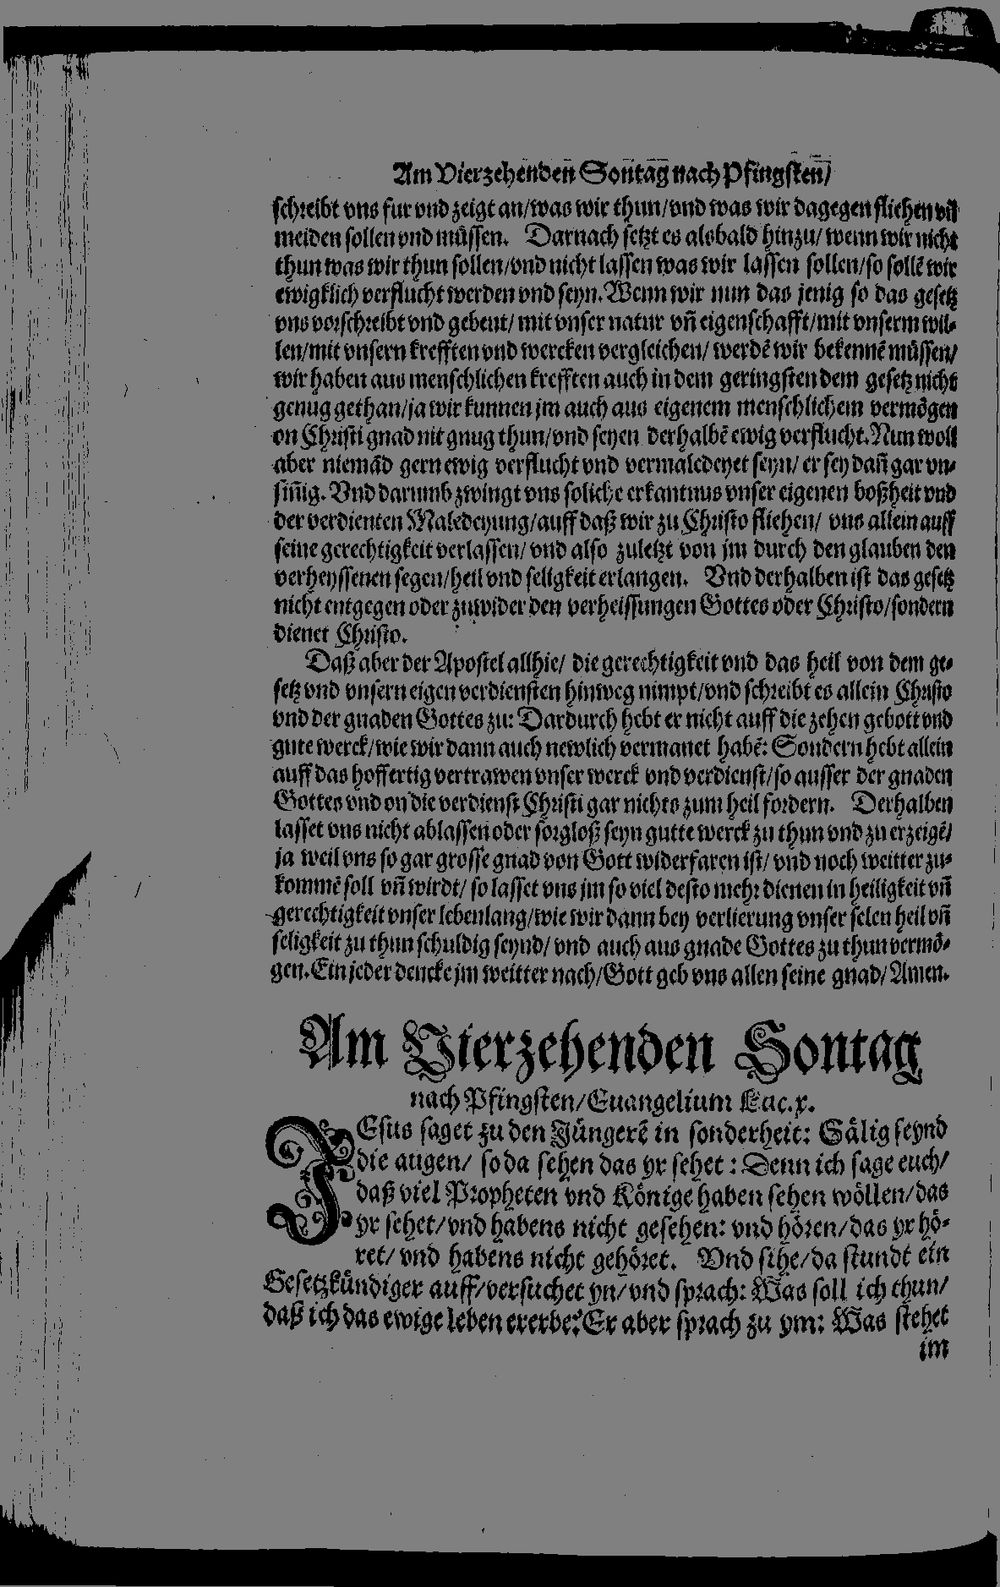 Am Vierzehenden Sontag nach Pfingsten/
schreibt vns fur vnd zeigt an/was wir thun/vnd was wir dagegen fliehen vñ
meiden sollen vnd müssen. Darnach setzt es alsbald hinzu/ wenn wir nicht
thun was wir thun sollen/vnd nicht lassen was wir lassen sollen/so sollē wir
ewigklich verflucht werden vnd seyn. Wenn wir nun das jenig so das gesetz
vns vorschreibt vnd gebeut/ mit vnser natur vñ eigenschafft/mit vnserm wil-
len/mit vnsern krefften vnd wercken vergleichen/ werdē wir bekennē müssen/
wir haben aus menschlichen krefften auch in dem geringsten dem gesetz nicht
genug gethan/ja wir kunnen jm auch aus eigenem menschlichem vermögen
on Christi gnad nit gnug thun/vnd seyen derhalbē ewig verflucht. Nun woll
aber niemād gern ewig verflucht vnd vermaledeyet seyn/ er sey dañ gar vn-
siñig. Vnd darumb zwingt vns soliche erkantnus vnser eigenen boßheit vnd
der verdienten Maledeyung/auff daß wir zu Christo fliehen/ vns allein auff
seine gerechtigkeit verlassen/ vnd also zuletzt von jm durch den glauben den
verheyssenen segen/heil vnd seligkeit erlangen. Vnd derhalben ist das gesetz
nicht entgegen oder zuwider den verheissungen Gottes oder Christo/sondern
dienet Christo.
Daß aber der Apostel allhie/ die gerechtigkeit vnd das heil von dem ge-
setz vnd vnsern eigen verdiensten hinweg nimpt/vnd schreibt es allein Christo
vnd der gnaden Gottes zu: Dardurch hebt er nicht auff die zehen gebott vnd
gute werck/wie wir dann auch newlich vermanet habē: Sondern hebt allein
auff das hoffertig vertrawen vnser werck vnd verdienst/so ausser der gnaden
Gottes vnd on die verdienst Christi gar nichts zum heil fordern. Derhalben
lasset vns nicht ablassen oder sorgloß seyn gutte werck zu thun vnd zu erzeigē/
ja weil vns so gar grosse gnad von Gott widerfaren ist/ vnd noch weitter zu-
kommē soll vñ wirdt/ so lasset vns jm so viel desto mehr dienen in heiligkeit vñ
gerechtigkeit vnser lebenlang/wie wir dann bey verlierung vnser selen heil vñ
seligkeit zu thun schuldig seynd/ vnd auch aus gnade Gottes zu thun vermö-
gen. Ein jeder dencke jm weitter nach/Gott geb vns allen seine gnad/ Amen.
Am Vierzehenden Sontag
nach Pfingsten/Euangelium Luc.x.
JEsus saget zu den Jüngerē in sonderheit: Sälig seynd
die augen/ so da sehen das yr sehet: Denn ich sage euch/
daß viel Propheten vnd Könige haben sehen wöllen/das
yr sehet/vnd habens nicht gesehen: vnd hören/das yr hö-
ret/ vnd habens nicht gehöret. Vnd sihe/da stundt ein
Gesetzkündiger auff/versuchet yn/vnd sprach: Was soll ich thun/
daß ich das ewige leben ererbe? Er aber sprach zu ym: Was stehet
im